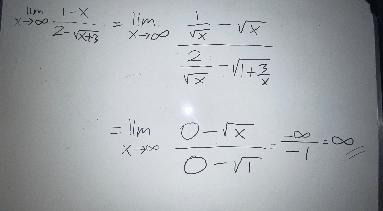 lim x→∞ (1-x)/(2-√(x+3)) = lim x→∞ (1/√x - √x)/(2/√x - √(1+3/x))
= lim x→∞ (0-√x)/(0-√1) = -∞/-1 = ∞